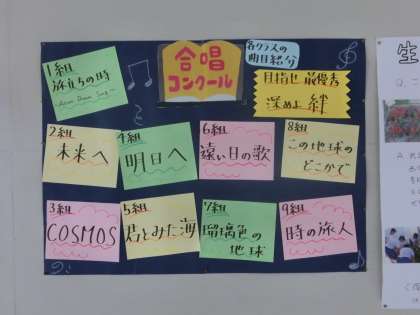 合唱
コンクール
各クラスの
曲目紹介
目指せ 最優秀
深めよ 絆
1組
旅立の時
~Asian Dream Song~
2組
未来へ
3組
COSMOS
4組
明日へ
5組
君とみた海
6組
遠い日の歌
7組
瑠璃色の
地球
8組
この地球の
どこかで
9組
時の旅人
生